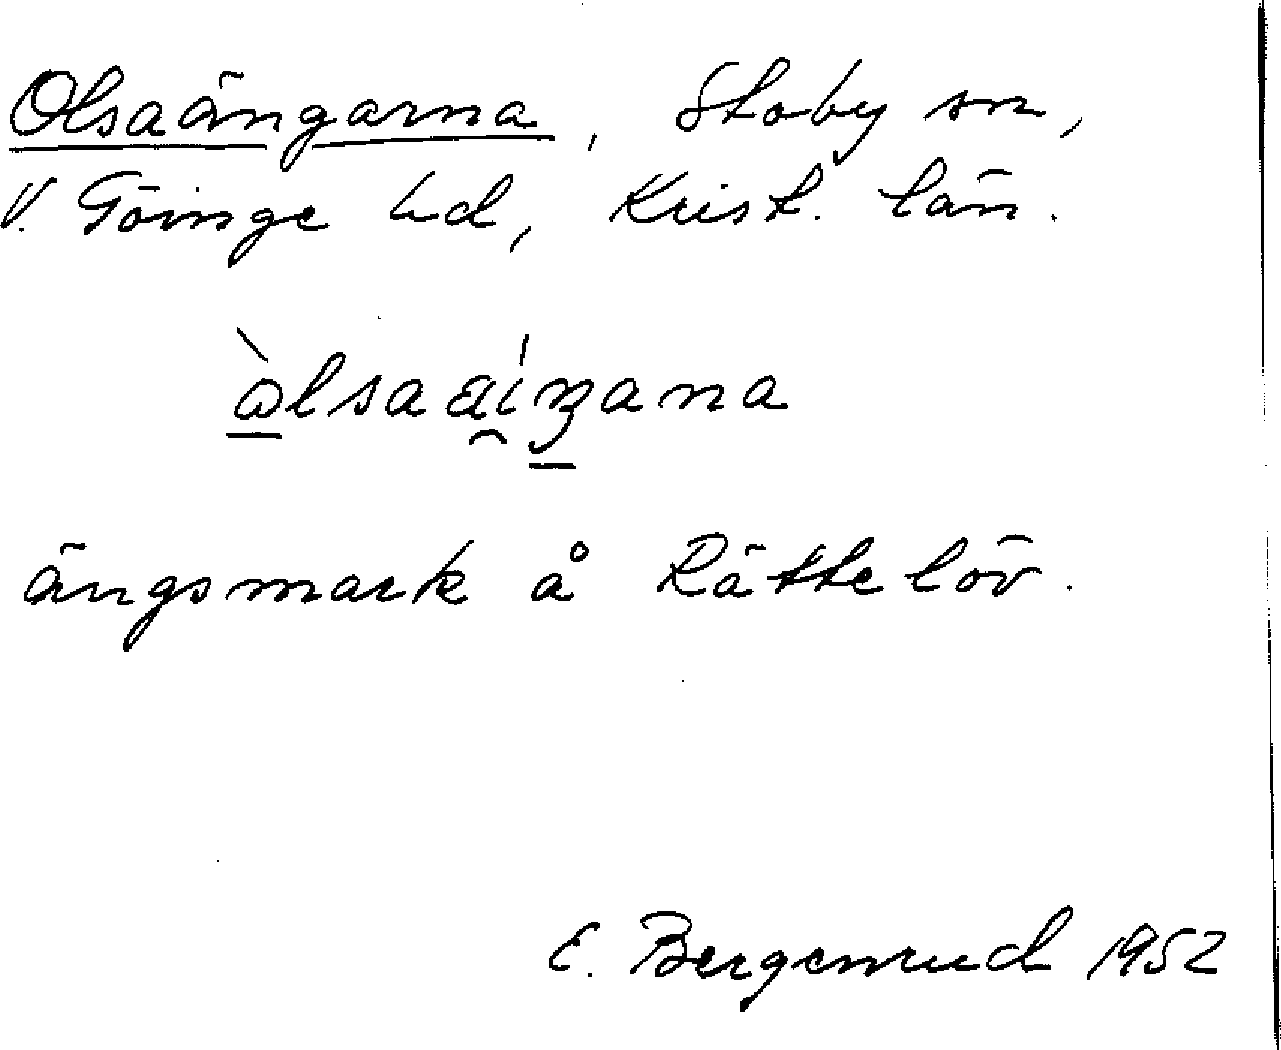 Olsaängarna, Stoby sn,
V. Göinge hd, Krist. län.
ängsmark å Rättelöv.
E. Bergenrud 1952